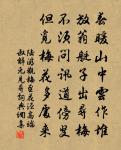 春暖山中雲作堆
放翁艇子出尋梅
不須問訊道傍叟
但覓梅花多處來
陸游觀梅至花涇高端
叔解元見尋詞典網集